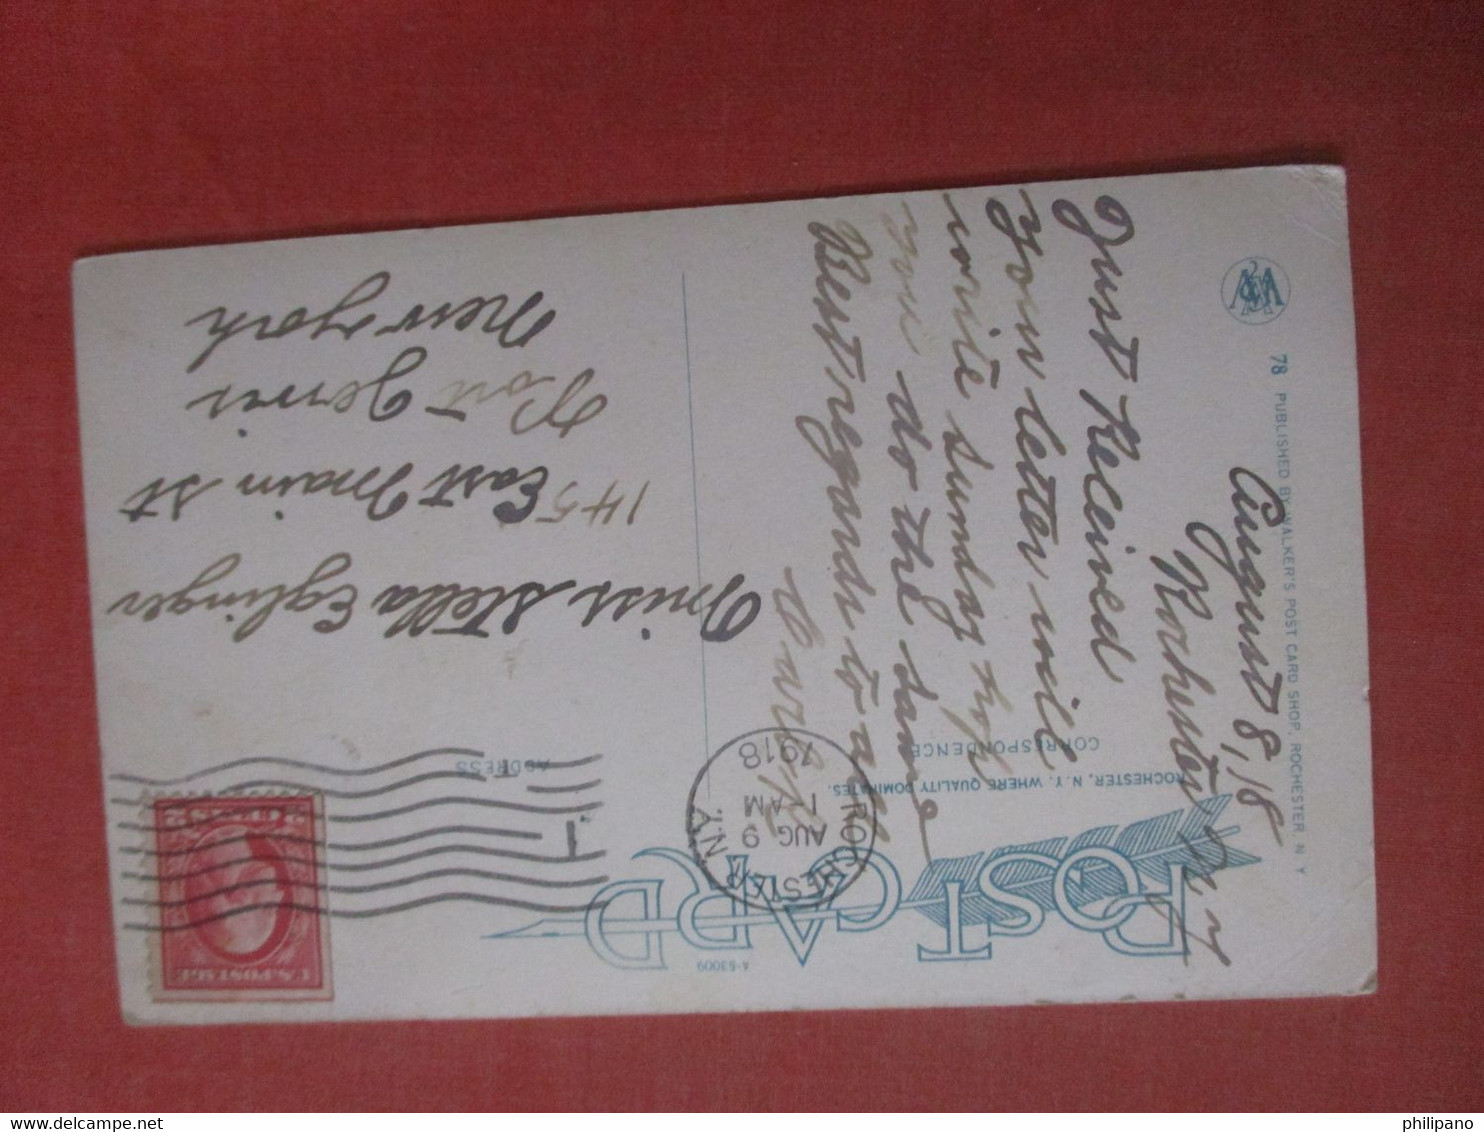 POST CARD
A-53009
ROCHESTER, N.Y. WHERE QUALITY DOMINATES.
CORRESPONDENCE
ADDRESS
78 PUBLISHED BY WALKER'S POST CARD SHOP, ROCHESTER N Y
ROCHESTER, N.Y.
AUG 9
1-AM
1918
2 CENTS 2
U.S. POSTAGE
August 8, 18
Rochester N. Y
Just Received
Your letter will
write sunday
you do the same
Best regards to all
Miss Stella Eglinger
145 East Main St
Port Jervis
New York
philipano
delcampe.net